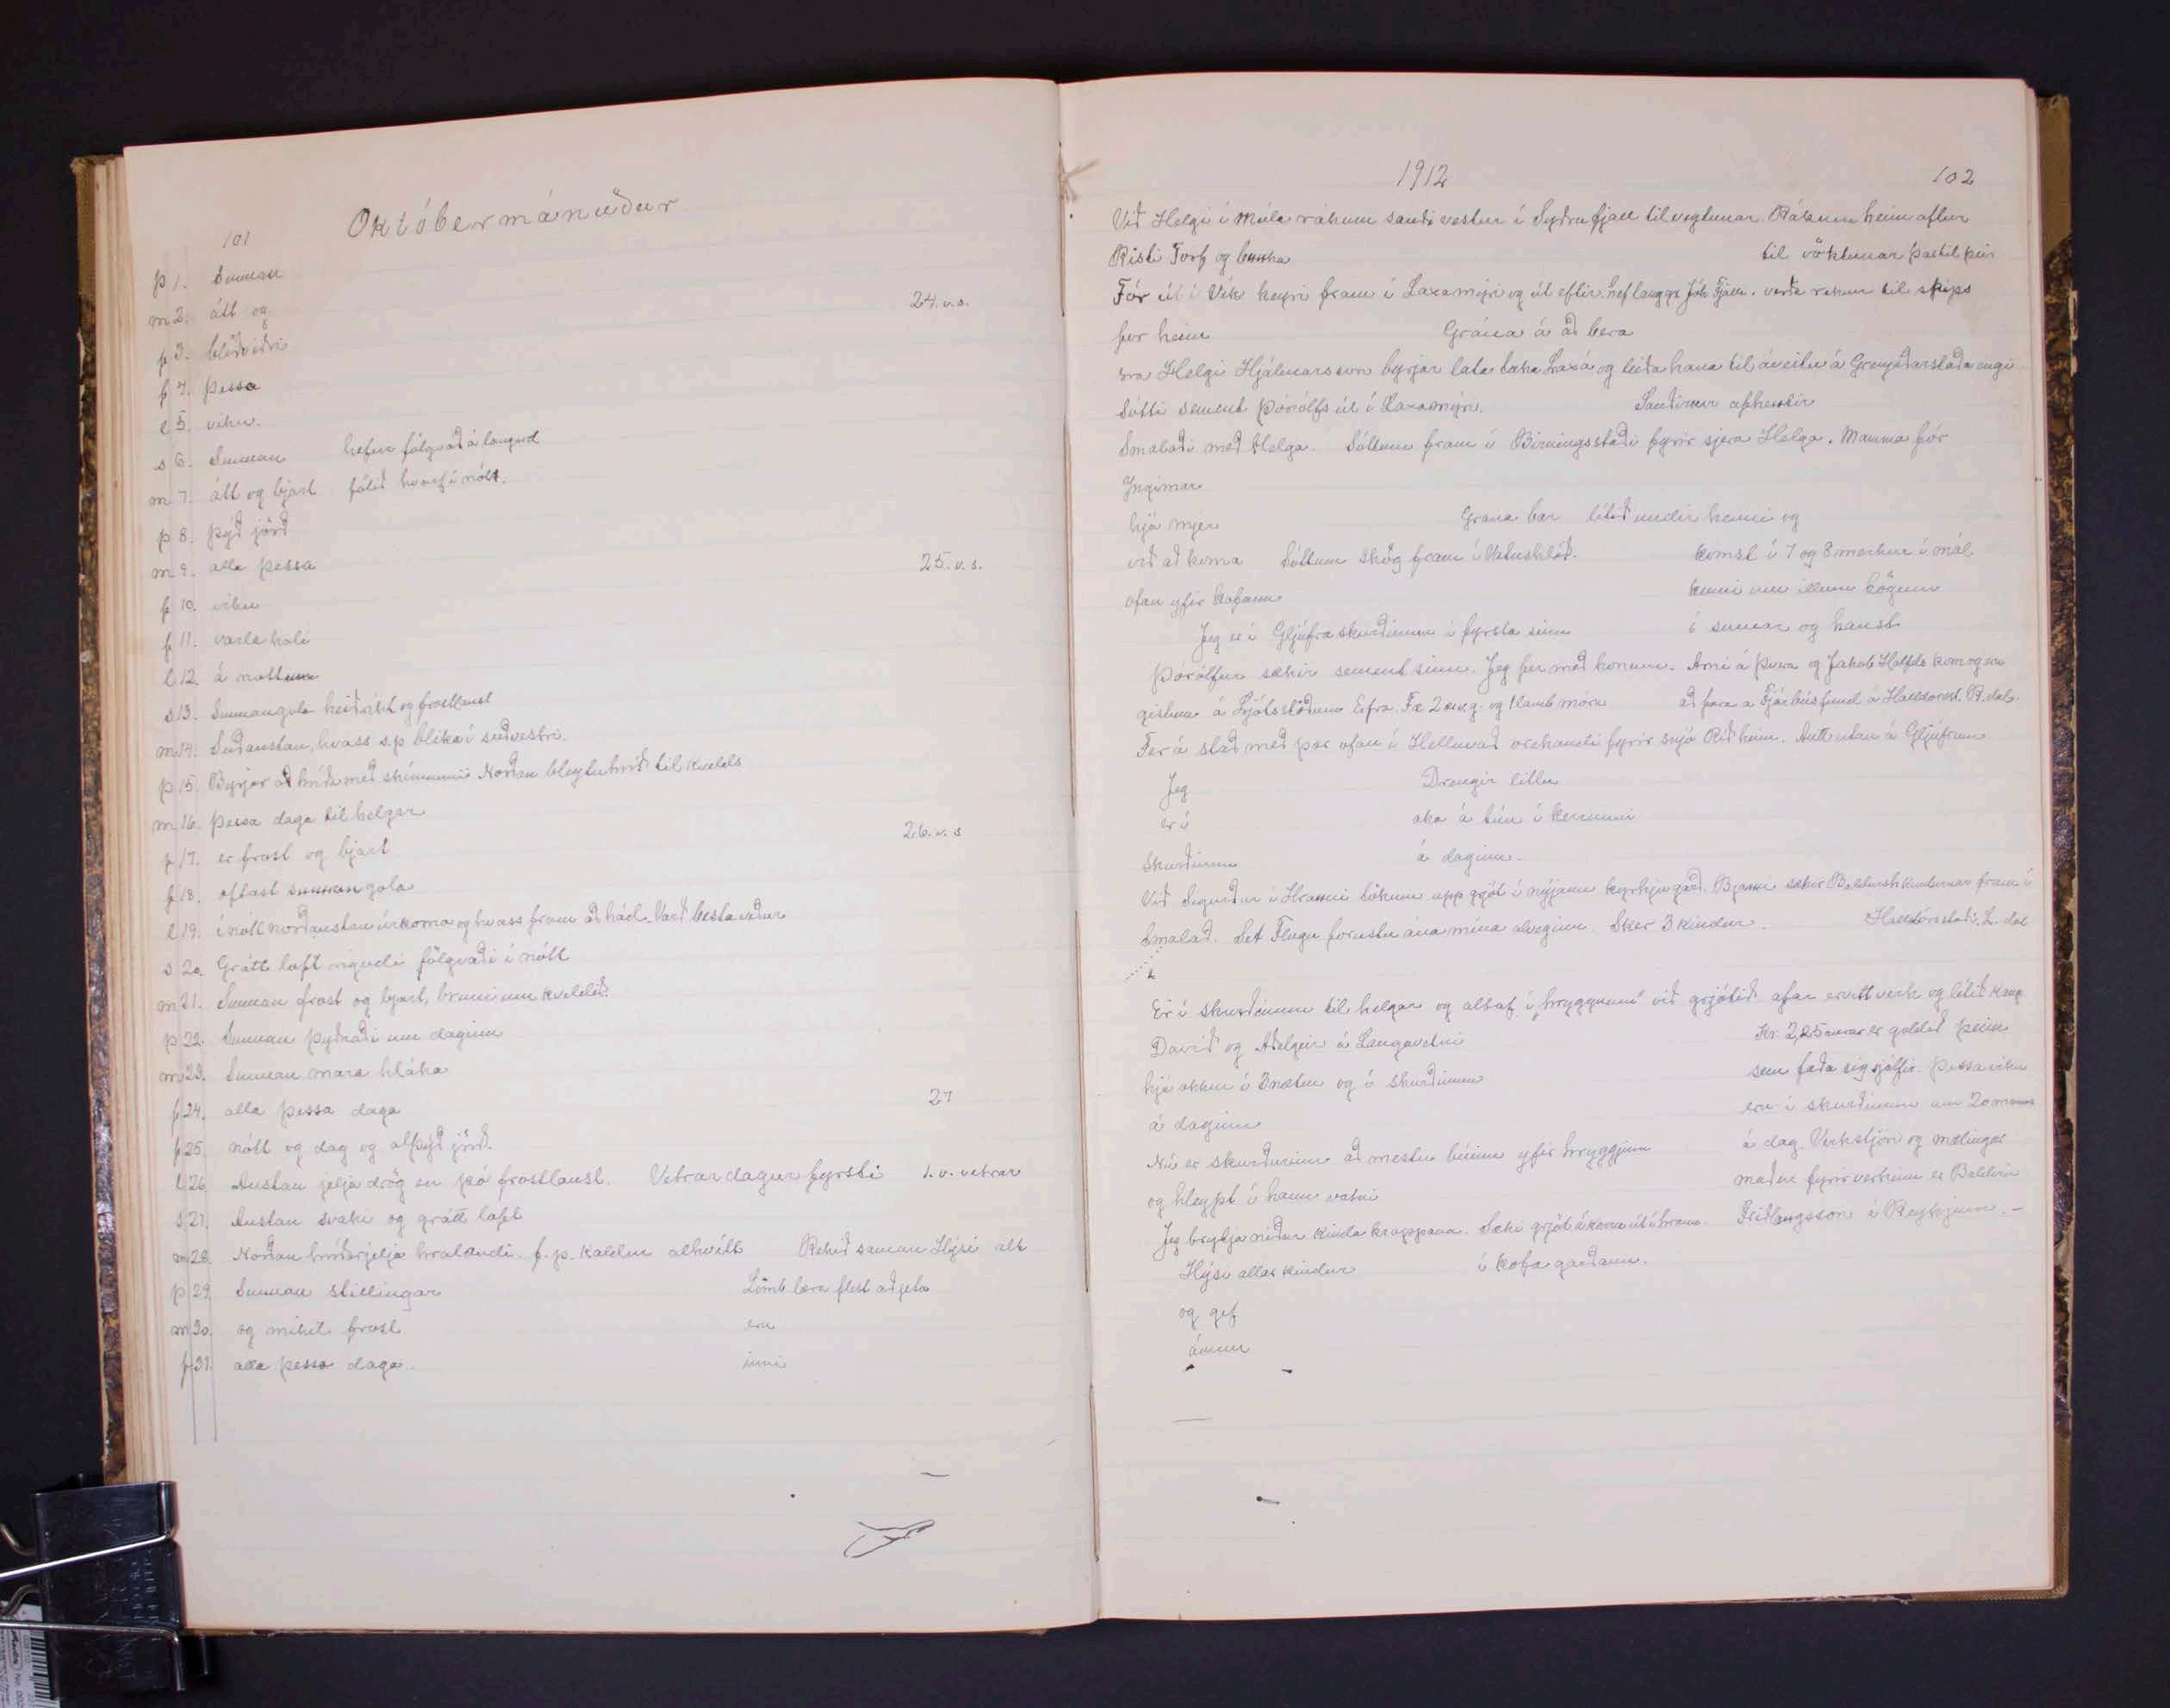 101
Októbermánuður
þ 1. Sunnan
m 2. átt og 24. v. s.
f 3. blíðviðri
f 4. þessa
l 5. viku.
s 6. Sunnan hefur fölgvað á langnd
m 7. átt og bjart fölið hvarf í nótt.
þ 8. þýð jörð
m 9. alla þessa 25. v. s.
f 10. viku
f 11. varla kali
l 12. á nottum
s 13. Sunnangola heiðríkt og frostlaust
m 14. Suðaustan, hvass s.p blika í suðvestri.
þ 15. Byrjar að hríða með skímunni Norðan bleytuhríð til kvelds
m 16. þessa daga til helgar
f 17. er frost og bjart 26. v. s
f 18. oftast sunnangola
l 19. í nótt norðaustan úrkoma og hvass fram að hád. Varð besta veður
s 20. Grátt loft rigndi fölgvaði í nótt
m 21. Sunnan frost og bjart, bruni um kveldið.
þ 22. Sunnan þyðraði um daginn
m 23. Sunnan mara hláka
f 24. alla þessa daga 27
f 25. nótt og dag og alþýð jörð.
l 26. Austan jelja drög en þó frostlaust. Vetrardagur fyrsti 1. v. vetrar
s 27. Austan svaki og grátt loft
m 28. Norðan hríðarjelja hralandi. f. p. Kaldur alhvítt Rekið saman Hýsi alt
þ 29. Sunnan stillingar Lömb læra flest að jeta
m 30. og mikil frost eru
f 31. alla þessa daga. inni
1912
102
Við Helgi í Múla rákum sauði vestur í Syðrafjall til vigtunar. Rákum heim aftur
Risti Torf og til vöktunar þar til þeir
Fór út í Vík keyri fram í Laxamýri og út eftir. verða reknir til skips
fer heim Grána á að bera
sra Helgi Hjálmarsson byrjar lata taka Laxá og leiða hana til áveitu á Grenjaðarstaða engi
Sótti sement Þórólfs út í Laxamýri. Sauðirnir afhentir
Smalaði með Helga. Sóttum fram í Birningsstaði fyrir sjera Helga. Mamma fór
Ingimar
hjá mjer Grána bar lítið undir henni og
við að koma Sóttum skóg fram í Vatnshlíð. komst í 7 og 8 merkur í mál
ofan yfir kofann kenni um illum högum
Jeg er í Gljúfraskurðinum í fyrsta sinn í sumar og haust
Þórólfur sækir sement sinn. Jeg fer með honum. Arni á Þvera og Jakob Halfds kom og eru
gistum á Ljótsstöðum Erfra. Fæ 2 og 1 lamb móru að fara a Fjárbúsfund á Halldorsst. R. dal.
Fer á stað með þær ofan í Helluvað orekandi fyrir snjó Rið heim. Autt utan á Gljúfrum
Jeg Drengir litlu
er í aka á tún í kerrunni
skurðinum á daginn.
Við Sigurður í Hrauni tókum upp grjót í nýjann kyrkjugarð. Bjarni sækir Baldurshkindurnar fram í
Smalað. Set Flugu forustu ána mína alveginn. Sker 3 kindur. Halldórsstaði. L. dal
Er í skurðinum til helgar og altaf í „hryggnum“ við grjótið afar ervitt verk og lítið kaup
Davíð og Aðalgeir á Langavatni Kr. 2,25 aurar er goldið þeim
hjá okkur í 3 nætur og í skurðinum sem fæða sig sjálfir. Þessa viku
á daginn eru í skurðinum um 20 manns
Nú er skurðurinn að mestu búinn yfir hryggjinn á dag. Verkstjóri og mælinga
og hleypt í hann vatni maður fyrir verkinu er Baldvin
Jeg brytja niður kinda kroppana. Sæki grjót á kerru út í hraun. Friðlaugsson á Reykjum. –
Hýsi allar kindur í kofa garðann.
og gef
ánum